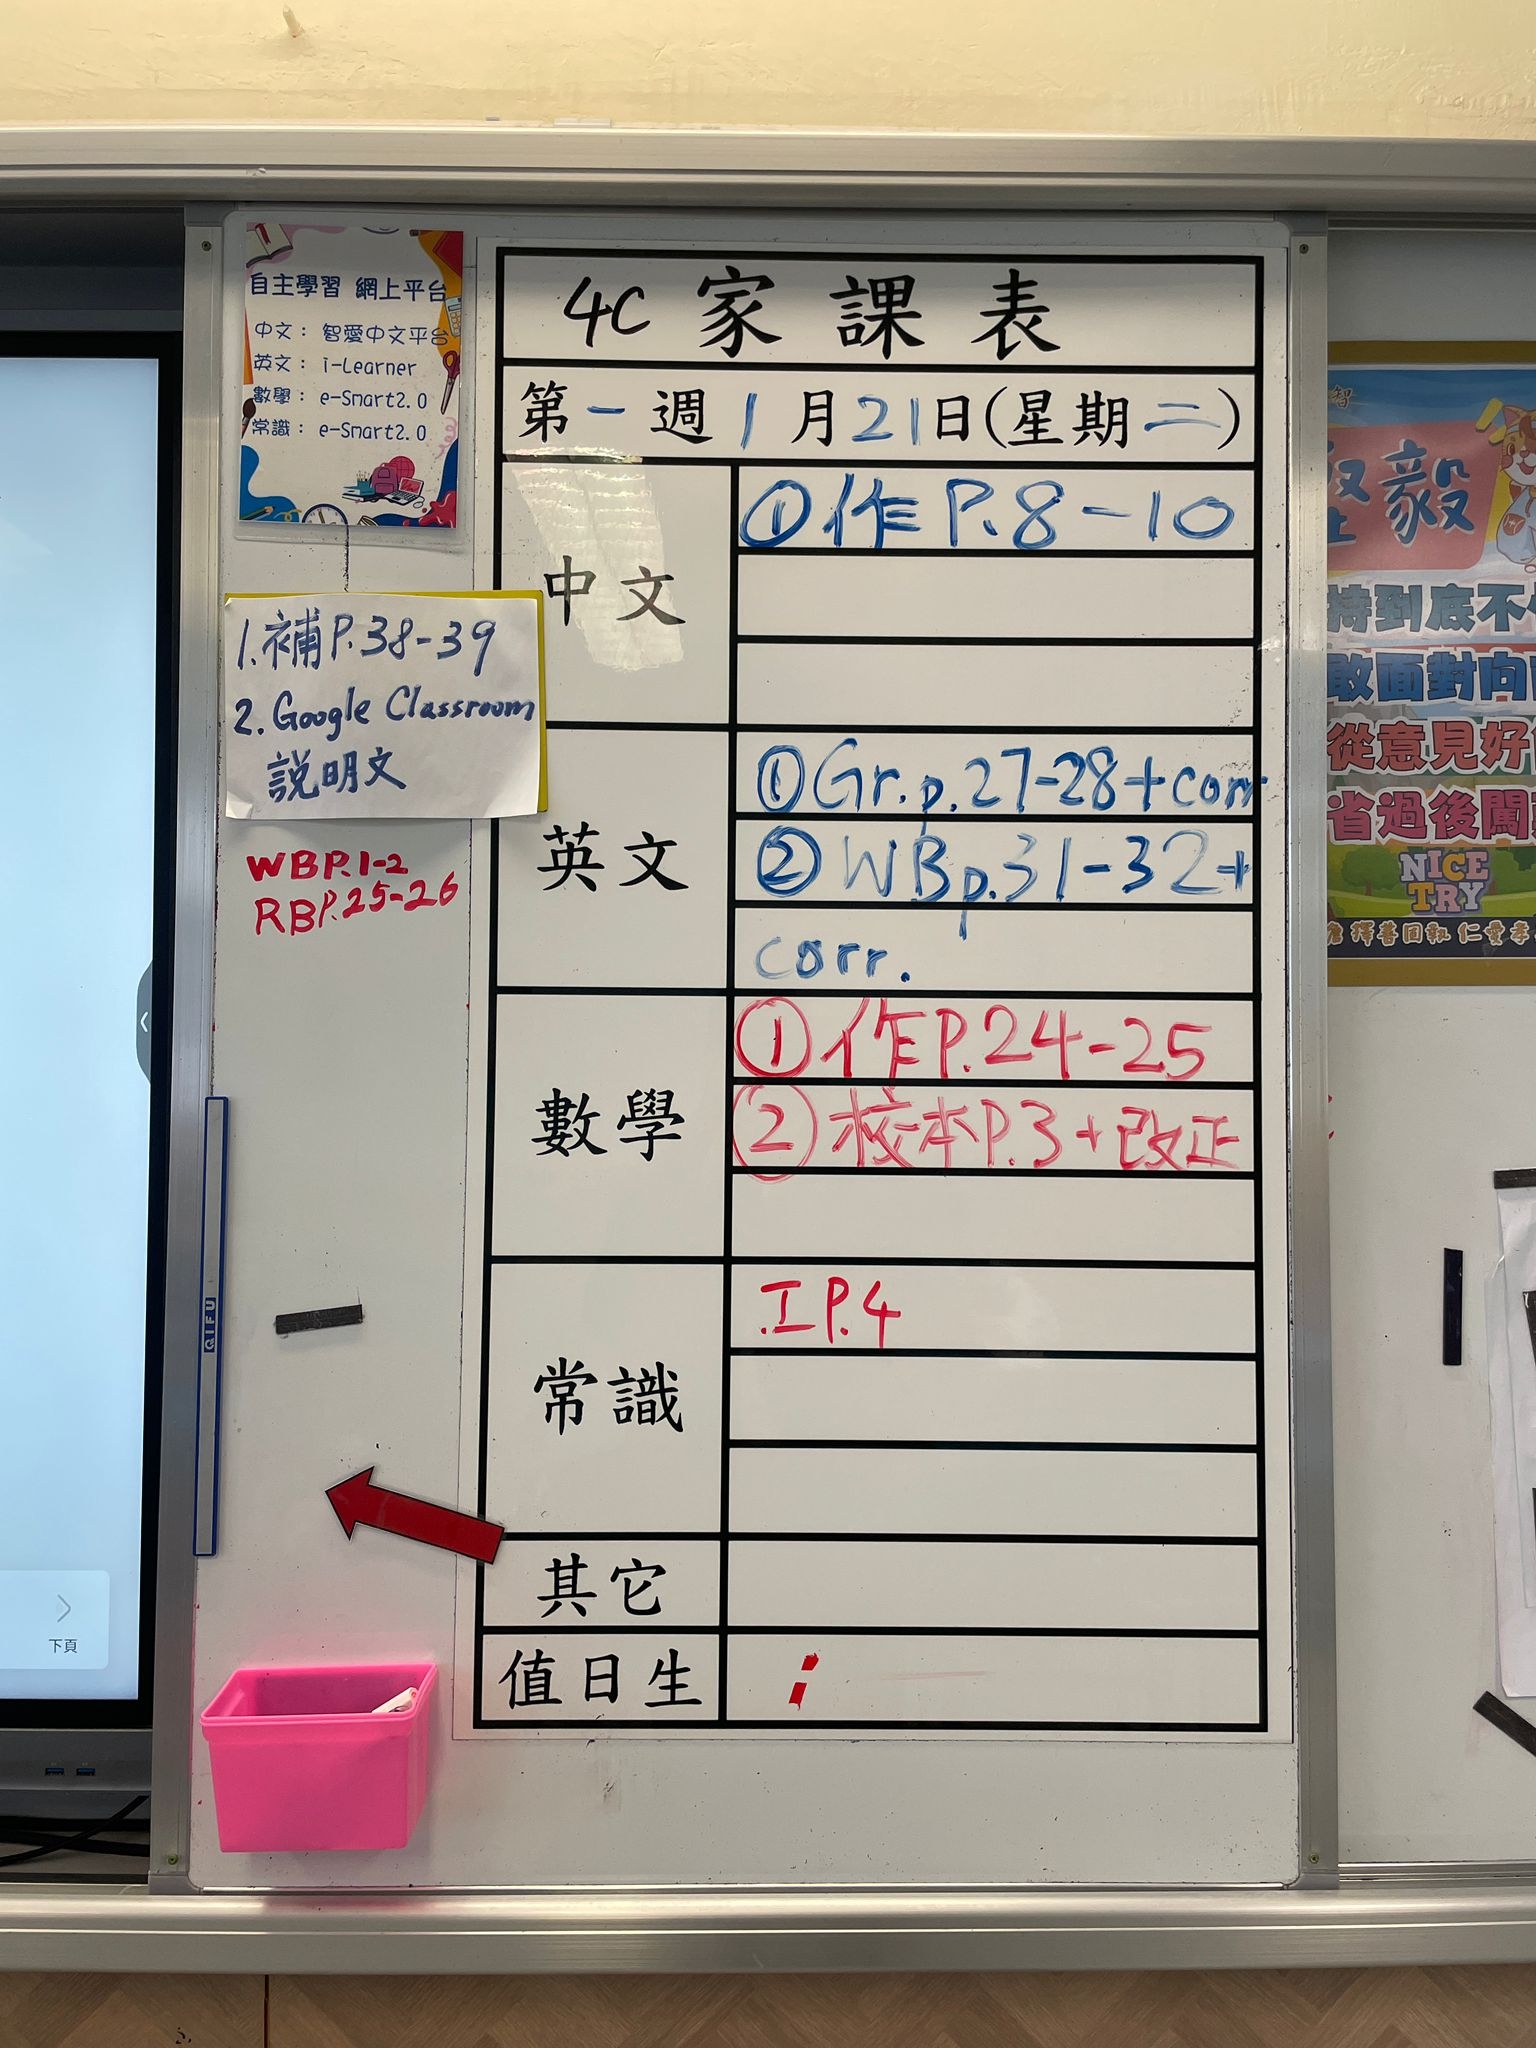 自主學習 網上平台
中文： 智愛中文平台
英文： i-Learner
數學： e-Smart2.0
常識： e-Smart2.0
1.補P.38-39
2.Google Classroom
說明文
WBP.1-2
RBP.25-26
4C 家課表
第一週1月21日(星期二)
中文
①作P.8-10
英文
①Gr.p.27-28+corr
②WBp.31-32+
corr.
數學
①作P.24-25
②校本P.3+改正
常識
.IP.4
其它
值日生
QIFU
下頁
智
毅
持到底不
敢面對向
從意見好
省過後闖
NICE
TRY
擇善固執 仁愛孝